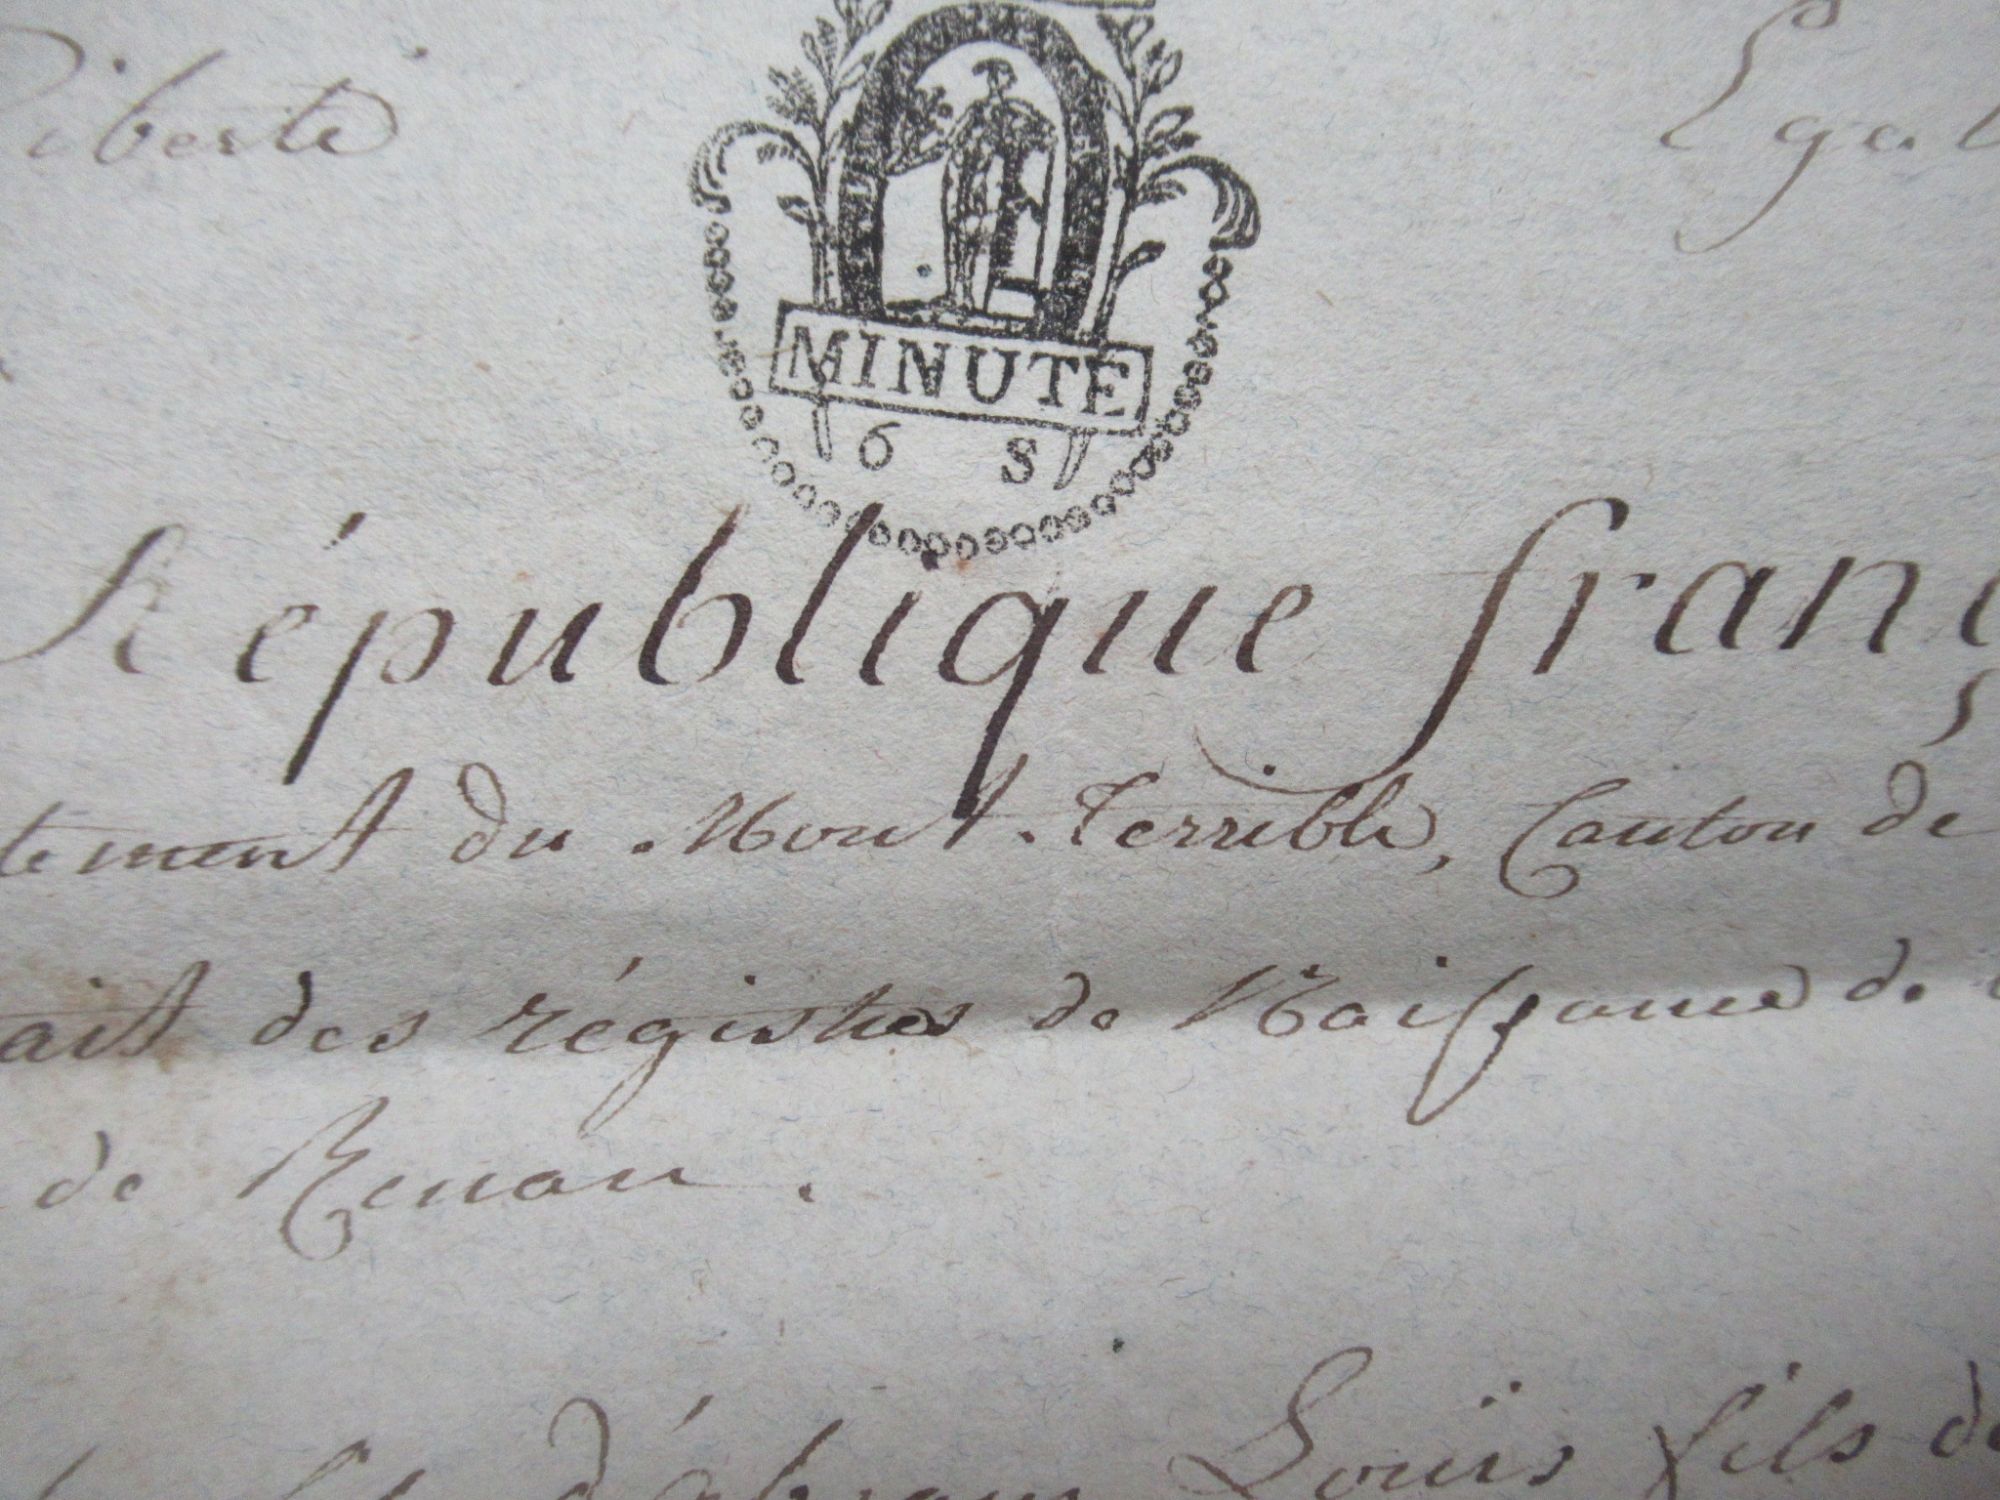 Liberté Egal
MINUTE
6 S
République franç
tement du Mont-Terrible, Canton de
ait des régistres de Naissance de
de Renan.
d'abram Louïs fils de